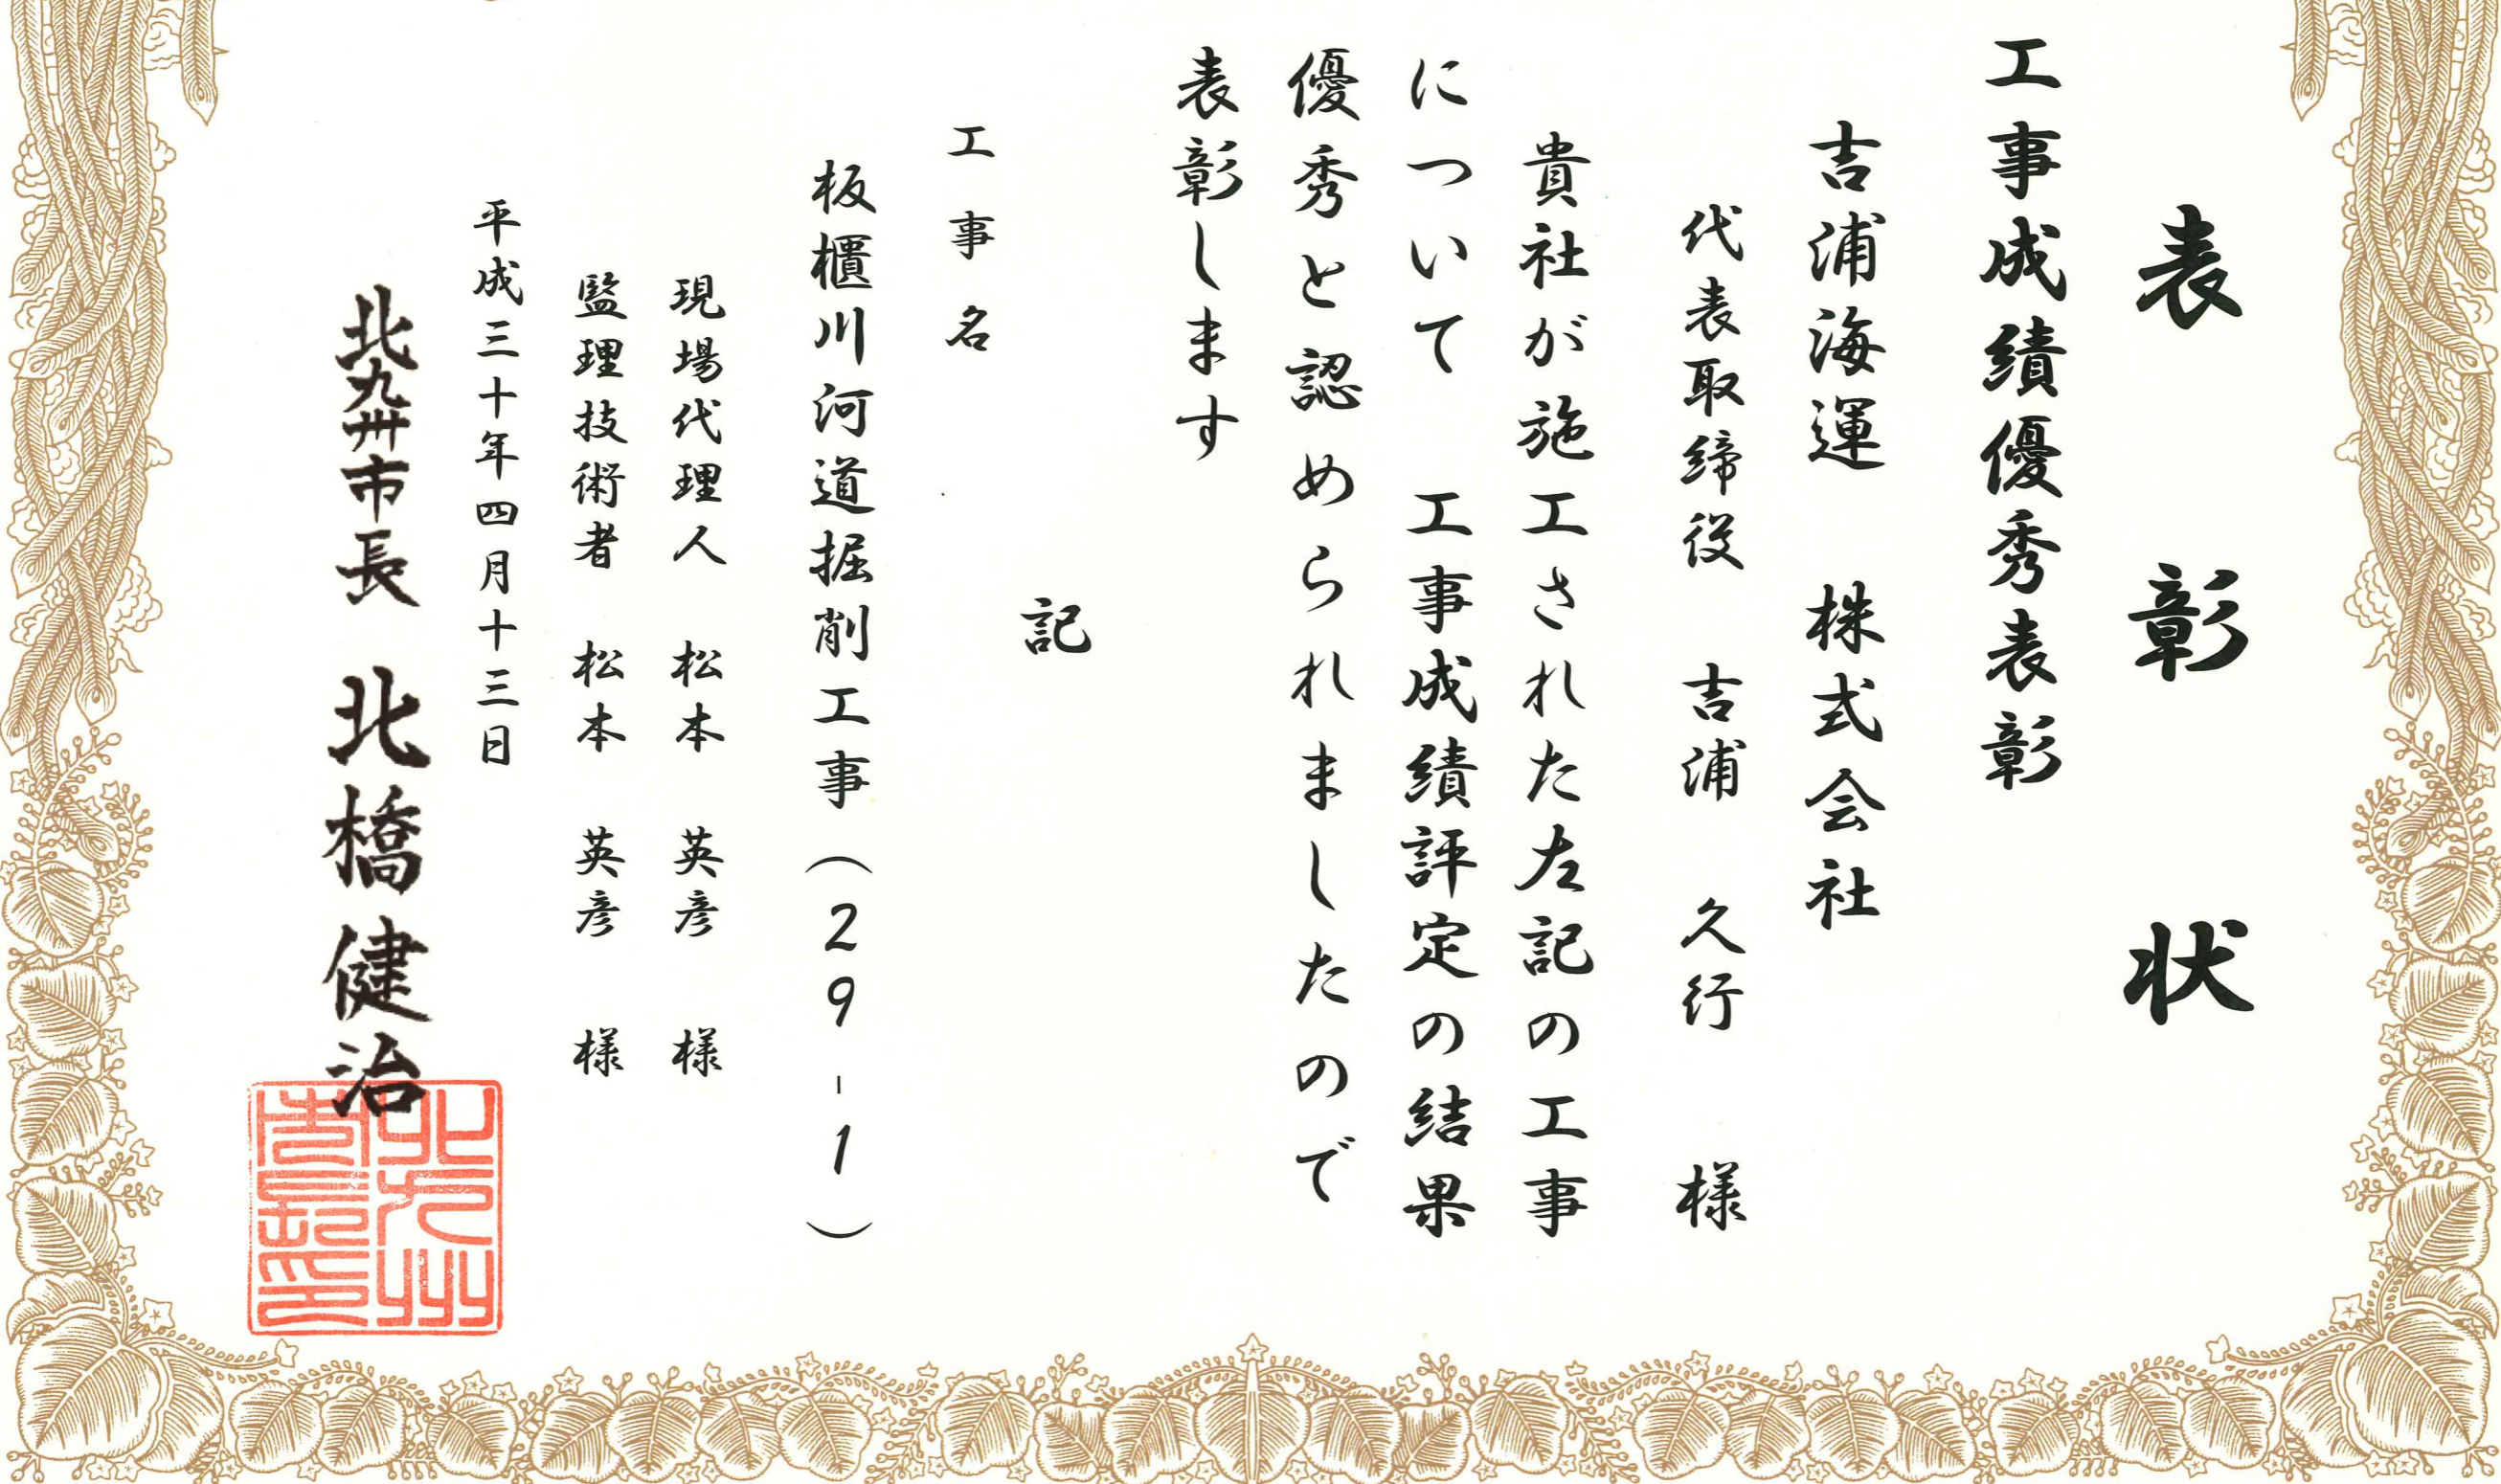 表彰状
工事成績優秀表彰
吉浦海運　株式会社
代表取締役　吉浦　久行　様
貴社が施工された左記の工事
について　工事成績評定の結果
優秀と認められましたので
表彰します
記
工事名
板櫃川河道掘削工事（29-1）
現場代理人　松本　英彦　様
監理技術者　松本　英彦　様
平成三十年四月十三日
北九州市長　北橋健治
北九州
市長印